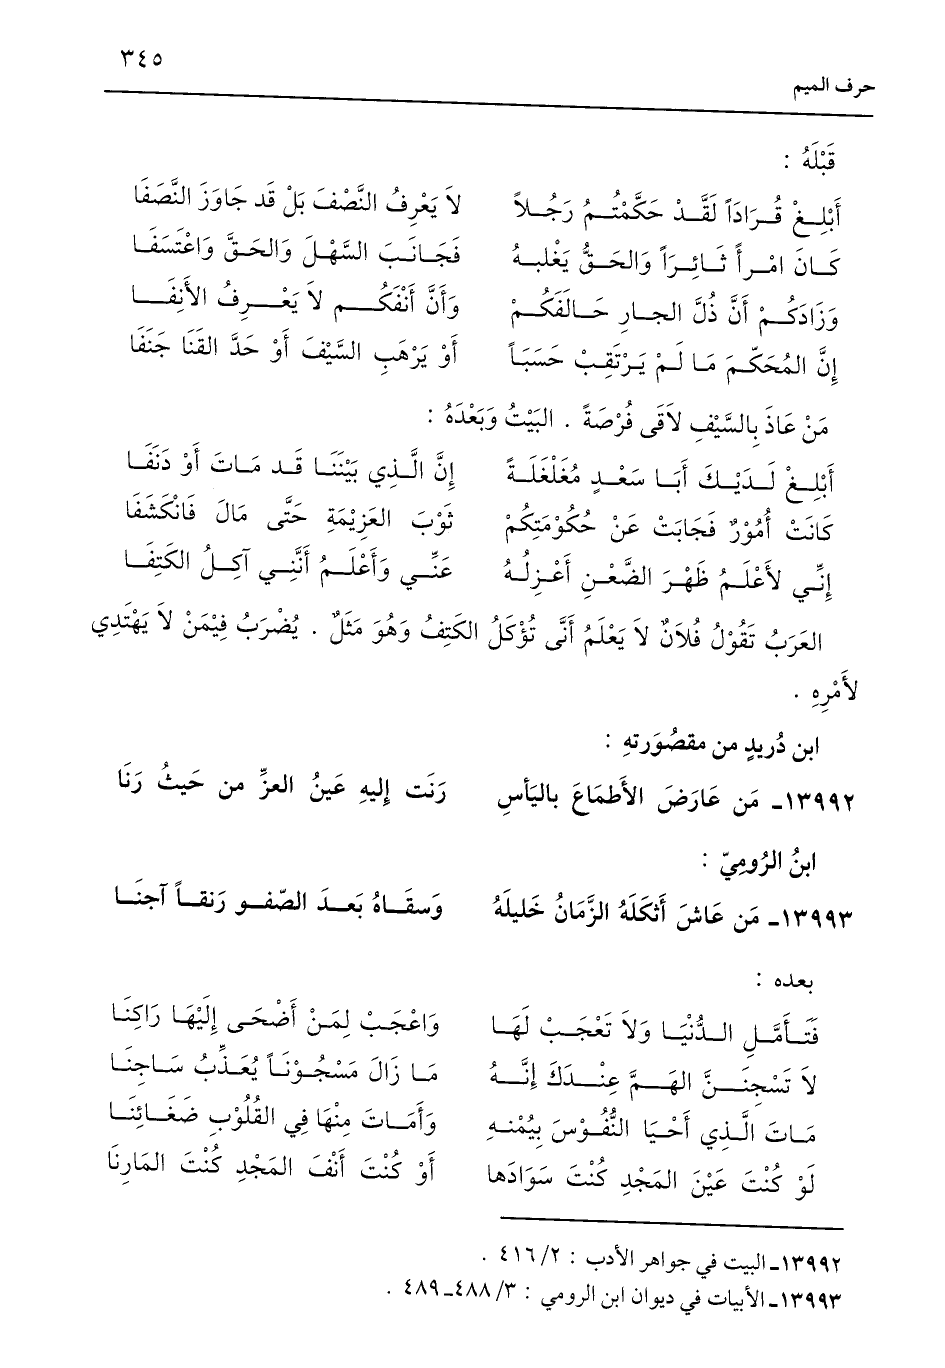 ٣٤٥
حرف الميم
قَبْلَهُ :
أَبْلِغْ قُرَاداً لَقَدْ حَكَّمْتُمُ رَجُلاً لاَ يَعْرِفُ النَّصْفَ بَلْ قَد جَاوَزَ النَّصَفَا
كَانَ امْرأً ثَائِرَاً وَالحَقُّ يَغْلِبهُ فَجَانَبَ السَّهْلَ وَالحَقَّ وَاعْتَسَفَا
وَزَادَكُمْ أَنَّ ذُلَّ الجارِ حَالَفَكُمْ وَأَنَّ أَنْفَكُم لاَ يَعْرِفُ الأَنِفَا
إِنَّ المُحَكّمَ مَا لَمْ يَرْتَقِبْ حَسَبَاً أَوْ يَرْهَبِ السَّيْفَ أَوْ حَدَّ القَنَا جَنَفَا
مَنْ عَاذَ بِالسَّيْفِ لاَقَى فُرْصَةً . البَيْتُ وَبَعْدَهُ :
أَبْلِغْ لَدَيْكَ أَبَا سَعْدٍ مُغَلْغَلَةً إِنَّ الَّذِي بَيْنَنَا قَد مَاتَ أَوْ دَنَفَا
كَانَتْ أُمُوْرٌ فَجَابَتْ عَنْ حُكُوْمَتِكُمْ ثَوْبَ العَزِيْمَةِ حَتَّى مَالَ فَانْكَشَفَا
إِنِّي لأَعْلَمُ ظَهْرَ الضَّعْنِ أَعْزِلُهُ عَنِّي وَأَعْلَمُ أَنَّنِي آكِلُ الكَتِفَا
العَرَبُ تَقُوْلُ فُلاَنٌ لاَ يَعْلَمُ أَنَّى تُؤْكَلُ الكَتِفُ وَهُوَ مَثَلٌ . يُضْرَبُ فِيْمَنْ لاَ يَهْتَدِي
لأَمْرِهِ .
ابن دُريدٍ من مقصُوَرتهِ :
١٣٩٩٢ـ مَن عَارَضَ الأَطمَاعَ باليَأسِ رَنَت إِليهِ عَينُ العزِّ من حَيثُ رَنَا
ابنُ الرُوميّ :
١٣٩٩٣ـ مَن عاشَ أَثكَلَهُ الزَّمَانُ خَليلَهُ وَسقَاهُ بَعدَ الصّفوِ رَنقاً آجنَا
بعده :
فَتَأَمَّلِ الدُّنْيَا وَلاَ تَعْجَبْ لَهَا وَاعْجَبْ لِمَنْ أَضْحَى إِلَيْهَا رَاكِنَا
لاَ تَسْجِنَنَّ الهَمَّ عِنْدَكَ إِنَّهُ مَا زَالَ مَسْجُوْنَاً يُعَذِّبُ سَاجِنَا
مَاتَ الَّذِي أَحْيَا النُّفُوْسَ بِيُمْنِهِ وَأَمَاتَ مِنْهَا فِي القُلُوْبِ ضَغَائِنَا
لَوْ كُنْتَ عَيْنَ المَجْدِ كُنْتَ سَوَادَها أَوْ كُنْتَ أَنْفَ المَجْدِ كُنْتَ المَارِنَا
١٣٩٩٢ـ البيت في جواهر الأدب : ٢/ ٤١٦ .
١٣٩٩٣ـ الأبيات في ديوان ابن الرومي : ٣/ ٤٨٨ـ ٤٨٩ .